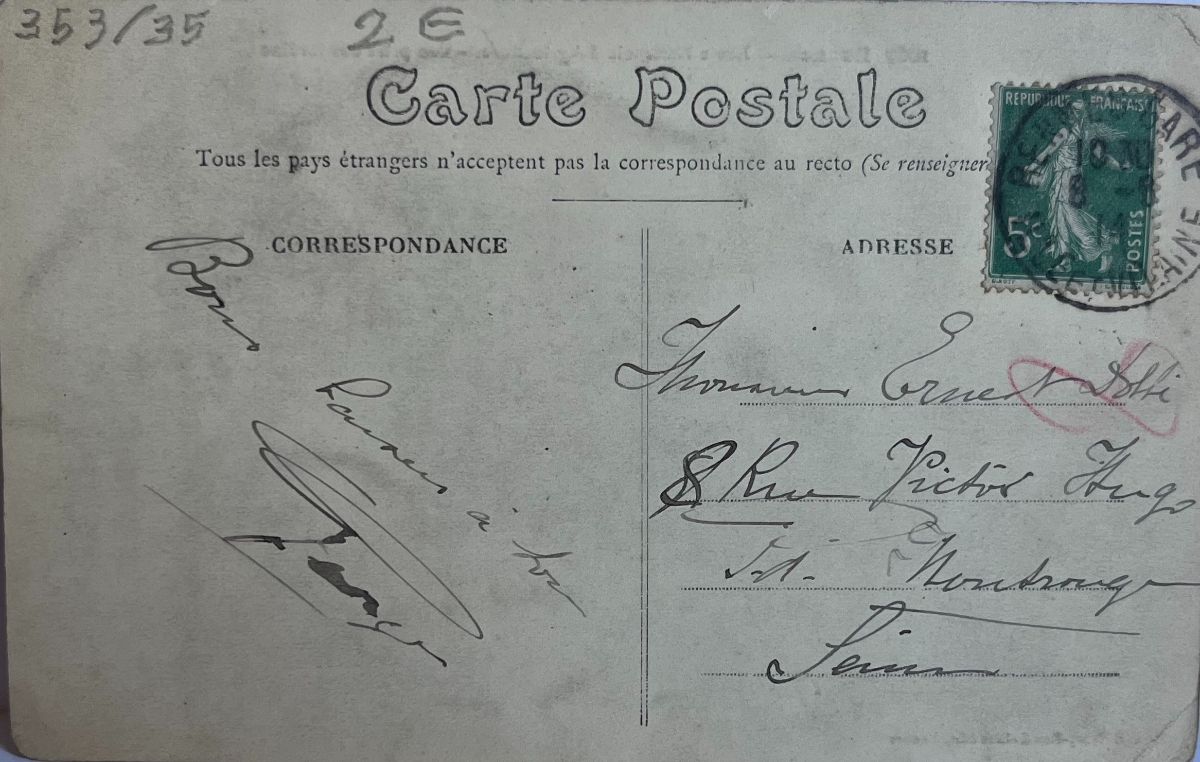 353/35 2 E
Carte Postale
Tous les pays étrangers n'acceptent pas la correspondance au recto (Se renseigner
CORRESPONDANCE
ADRESSE
REPUBLIQUE FRANÇAISE
5c
POSTES
Bons
à toi
Ernest
8 Rue Victor Hugo
Pt. Montrouge
Seine